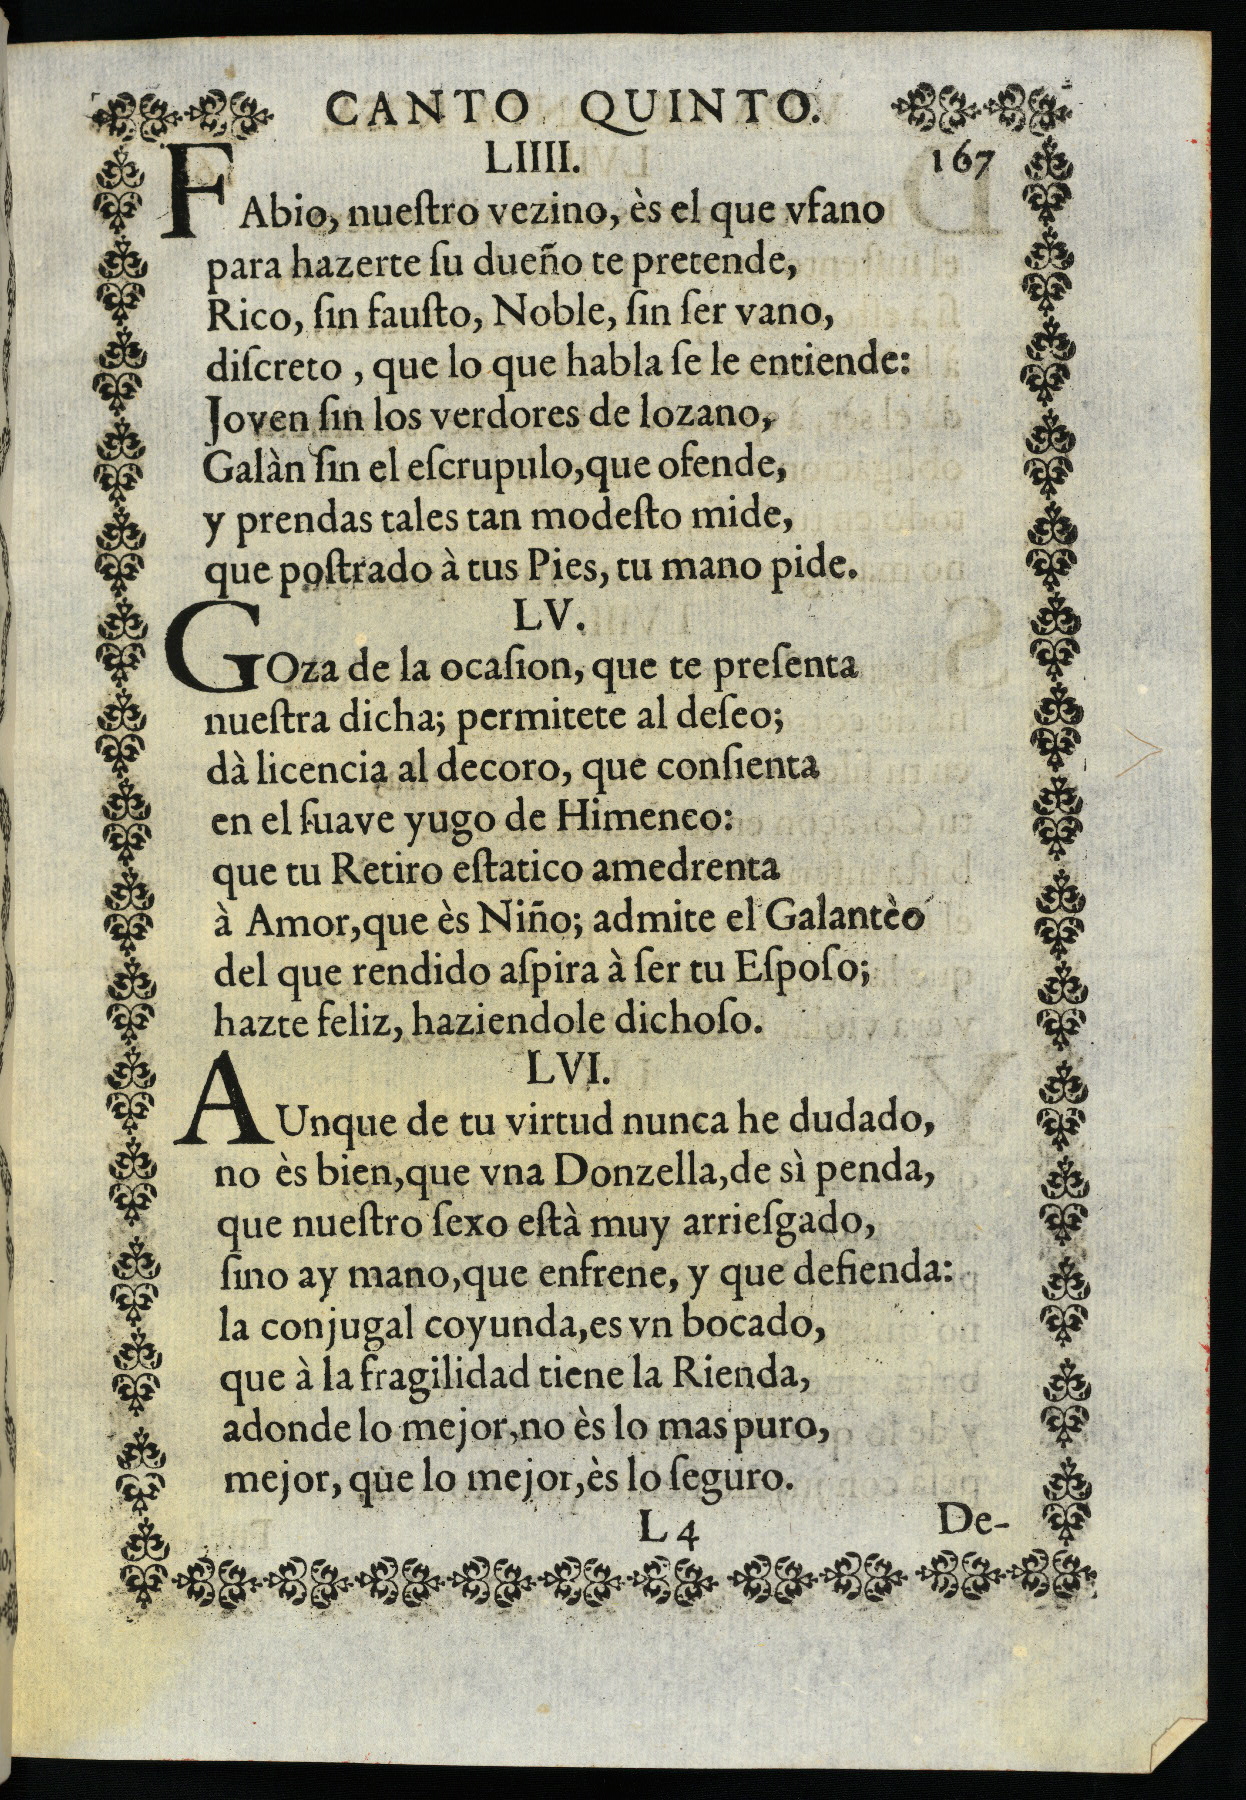 CANTO QUINTO.
LIIII. 167
FAbio, nueſtro vezino, ès el que vfano
para hazerte ſu dueño te pretende,
Rico, ſin fauſto, Noble, ſin ſer vano,
diſcreto , que lo que habla ſe le entiende:
Joven ſin los verdores de lozano,
Galàn ſin el eſcrupulo,que ofende,
y prendas tales tan modeſto mide,
que poſtrado à tus Pies, tu mano pide.
LV.
GOza de la ocaſion, que te preſenta
nueſtra dicha; permitete al deſeo;
dà licencia al decoro, que conſienta
en el ſuave yugo de Himeneo:
que tu Retiro eſtatico amedrenta
à Amor,que ès Niño; admite el Galantèo
del que rendido aſpira à ſer tu Eſpoſo;
hazte feliz, haziendole dichoſo.
LVI.
AUnque de tu virtud nunca he dudado,
no ès bien,que vna Donzella,de sì penda,
que nueſtro ſexo eſtà muy arrieſgado,
ſino ay mano,que enfrene, y que defienda:
la conjugal coyunda,es vn bocado,
que à la fragilidad tiene la Rienda,
adonde lo mejor,no ès lo mas puro,
mejor, que lo mejor,ès lo ſeguro.
L 4 De-